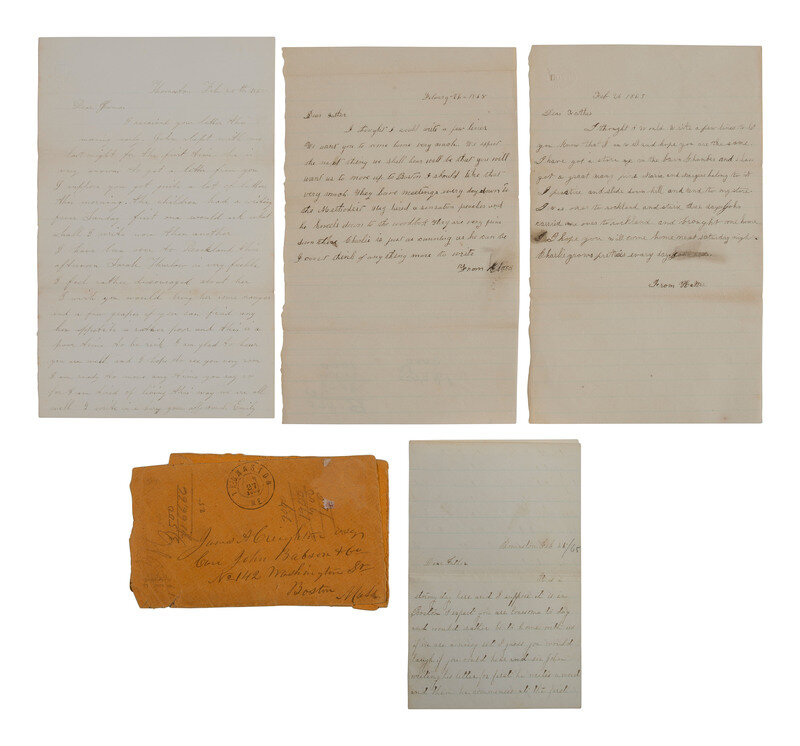 Thomaston Feb
Dear James
I received your letter this
morning early. John slept with me
last night for the first time. she is
very to get a letter from you
I suppose you got quite a lot of letters
this morning. The children had a writing
over Sunday first one would ask what
shall I write now then another
I have been over to Rockland this
afternoon. Sarah is very feeble
I feel rather discouraged about her
I wish you would bring her some oranges
and a few grapes if you can find any
her appetite is rather poor and this is a
poor time to be sick. I am glad to hear
you are well and I hope to see you very soon
I am ready to move any time you say so
for I am tired of living this way we are all
well. I write in a very Emily
Dear Father
I thought I would write a few lines
We want you to come home very much. We expect
the next thing we shall hear will be that you will
want us to move up to Boston I should like that
very much. They have meetings every day down to
the Methodist they hired a sensation preacher and
he down to the They are very
Charlie is just as cunning as he can be
I cannot think of any thing more to write
From
Feb 26 1865
Dear Father
I thought I would write a few lines to let
you know that I am well and hope you are the same
I have got a store up in the barn chamber and I have
got a great many
I and slide down hill and tend to my store
I was over to rockland and staid three days John
carried me over to rockland and brought me home
I hope you will come home next saturday night
Charlie grows prettier every day
From
THOMASTON
ME
James A Creighton Esq
Care John Babson & Co
No 142 Washington St
Boston Mass
Thomaston Feb 26/65
Dear Father
It is a
stormy day here and I suppose it is in
Boston I expect you are lonesome to day
and would rather be to home with us
if we are a noisy set I guess you would
laugh if you could here and see John
writing his letter for first he writes a word
and then he commences at the first